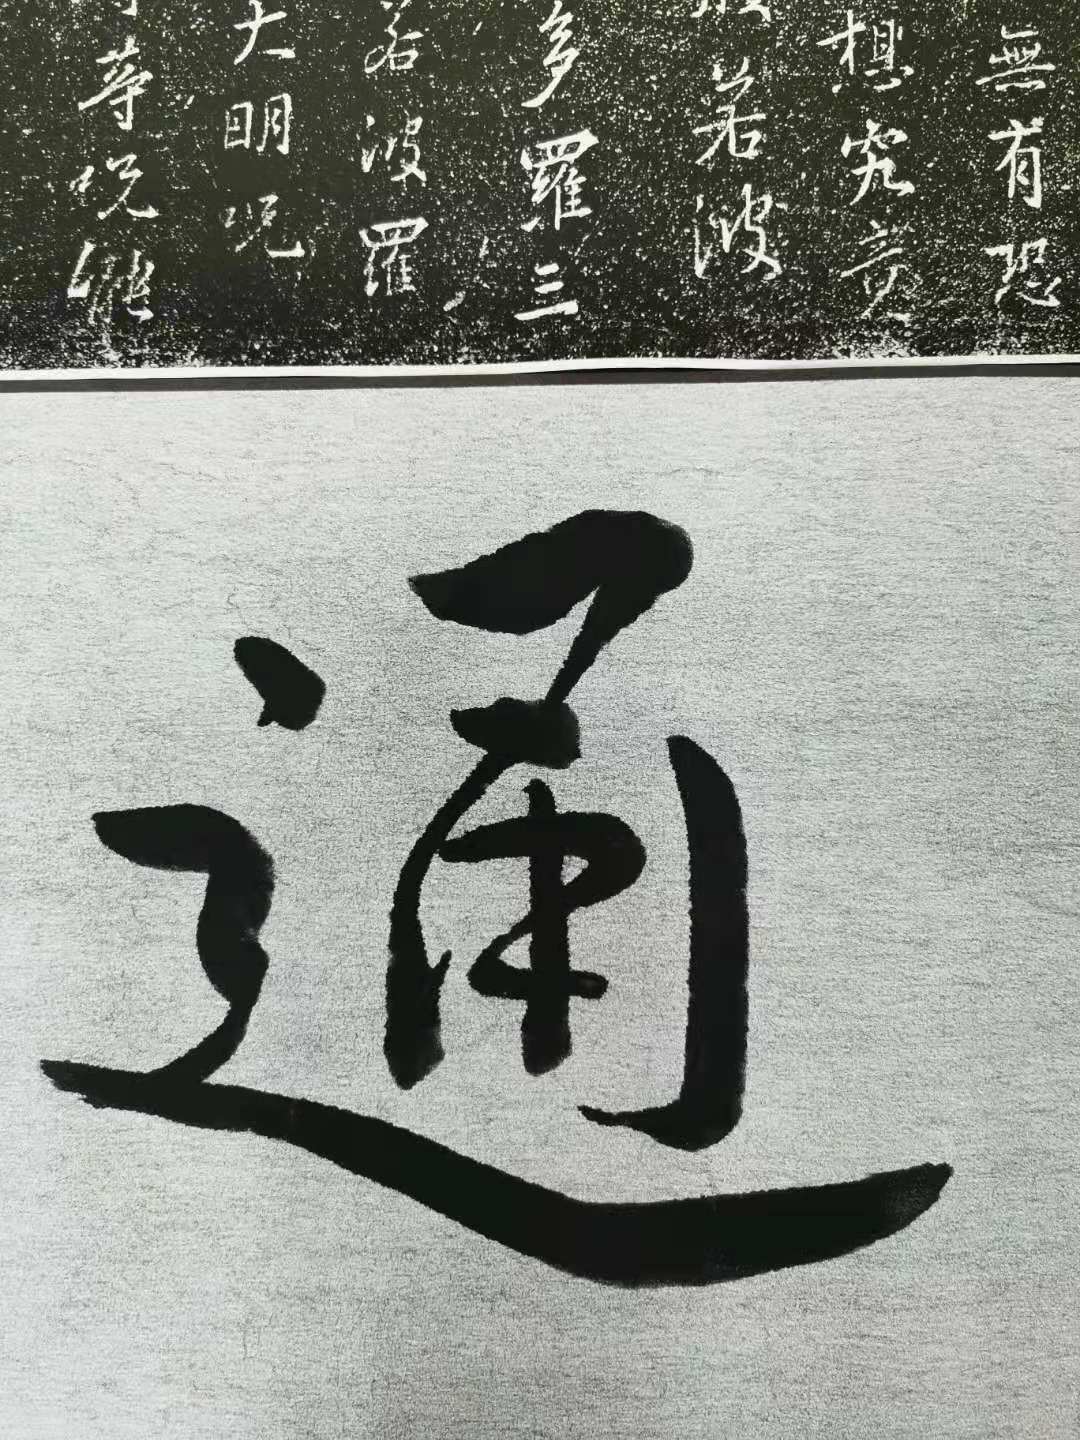 無有恐
想究竟
若波
多羅三
若波羅
大明呪
等呪能
通